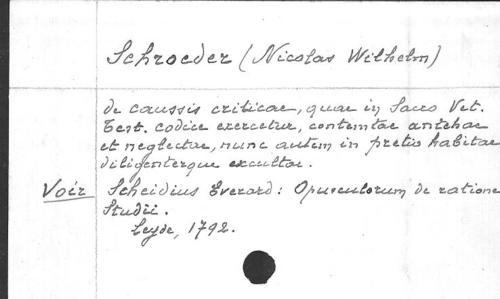 Schroeder (Nicolas Wilhelm)
de caussis criticae, quae in Sacro Vet.
Test. codice exercetur, contemtae antehac
et neglectae, nunc autem in pretio habitae
diligenterque excultae.
Voir Scheidius Everard: Opusculorum de ratione
Studii.
Leyde, 1792.